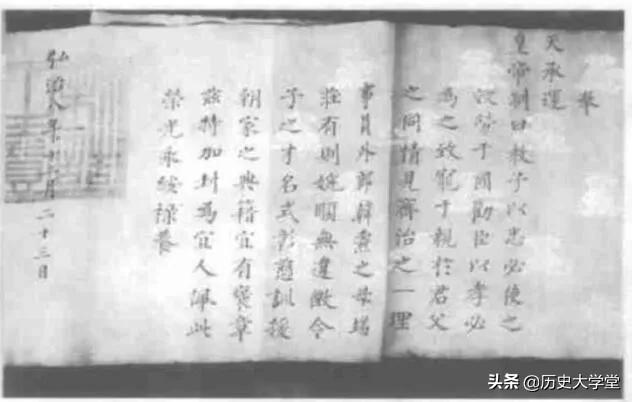 奉
天承運
皇帝制曰教子以忠必使之
效勞于國勸臣以孝必
為之致寵于親於君父
之同情見齊治之一理
事員外郎韓之母
莊有則婉順無違令
子之才名式彰慈訓援
朝家之典籍宜有褒章
茲特加封為宜人佩此
榮光永綏祿養
弘治八年十月二十三日
头条 @历史大学堂